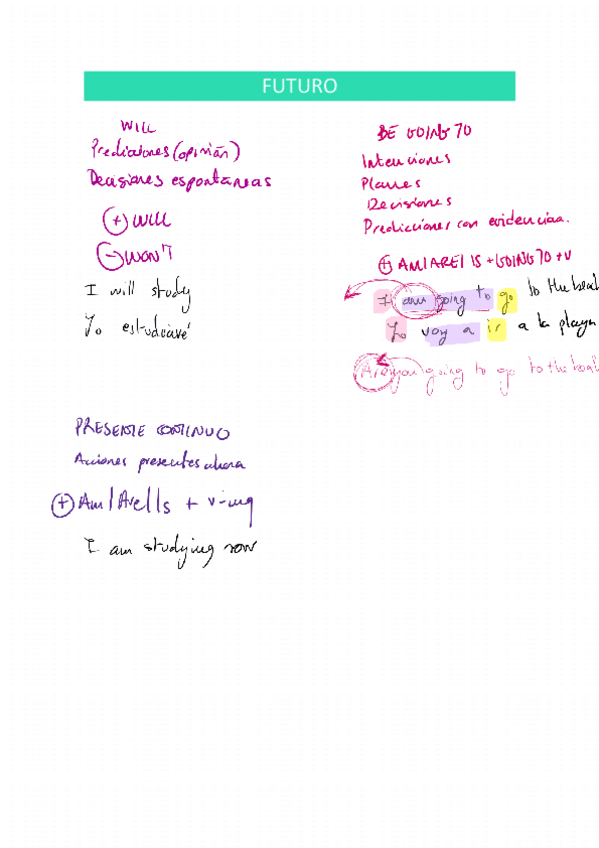 FUTURO
WILL
Predicciones (opinión)
Decisiones espontáneas
+ WILL
- WON'T
I will study
Yo estudiaré
BE GOING TO
Intenciones
Planes
Decisiones
Predicciones con evidencias.
+ AM/ARE/IS + GOING TO + V
I am going to go to the beach
Yo voy a ir a la playa
Are you going to go to the beach
PRESENTE CONTINUO
Acciones presentes ahora
+ Am/Are/Is + v-ing
I am studying now